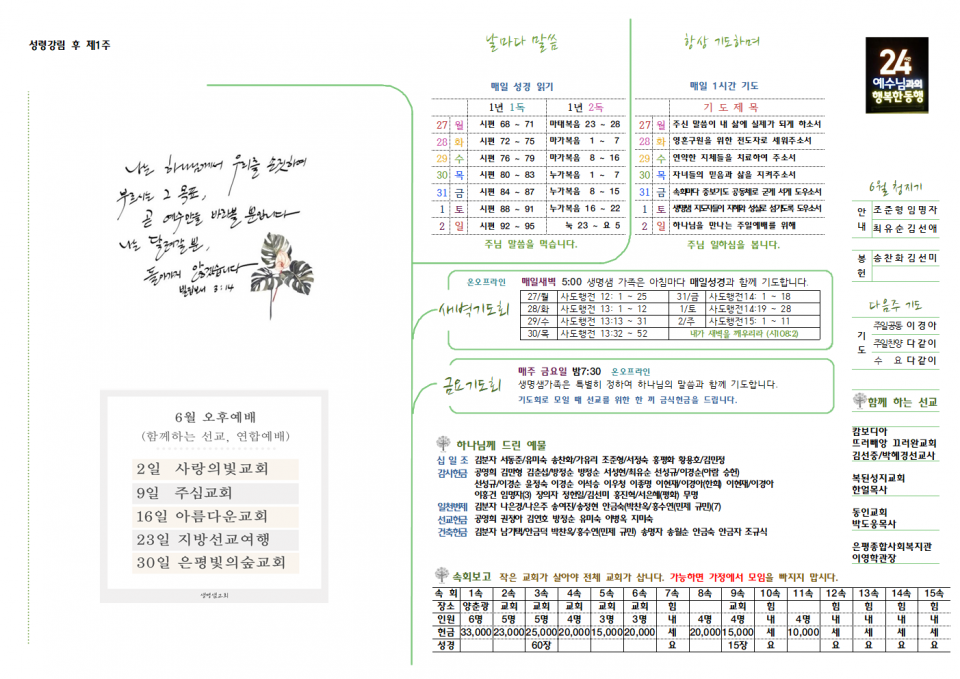 성령강림 후 제1주
나는 하나님께서 우리를 손짓하여
부르시는 그 목표,
곧 예수만을 바라볼 뿐입니다
나는 달려갈 뿐,
돌아가지 않겠습니다
빌립보서 3:14
6월 오후예배
(함께하는 선교, 연합예배)
2일 사랑의빛교회
9일 주심교회
16일 아름다운교회
23일 지방선교여행
30일 은평빛의숲교회
생명샘교회
날마다 말씀
매일 성경 읽기
1년 1독 1년 2독
27 월 시편 68 ~ 71 마태복음 23 ~ 28
28 화 시편 72 ~ 75 마가복음 1 ~ 7
29 수 시편 76 ~ 79 마가복음 8 ~ 16
30 목 시편 80 ~ 83 누가복음 1 ~ 7
31 금 시편 84 ~ 87 누가복음 8 ~ 15
1 토 시편 88 ~ 91 누가복음 16 ~ 22
2 일 시편 92 ~ 95 눅 23 ~ 요 5
주님 말씀을 먹습니다.
항상 기도하며
매일 1시간 기도
기 도 제 목
27 월 주신 말씀이 내 삶에 실제가 되게 하소서
28 화 영혼구원을 위한 전도자로 세워주소서
29 수 연약한 지체들을 치료하여 주소서
30 목 자녀들의 믿음과 삶을 지켜주소서
31 금 속회마다 중보기도 공동체로 굳게 서게 도우소서
1 토 생명샘 지도자들이 지혜와 성실로 섬기도록 도우소서
2 일 하나님을 만나는 주일예배를 위해
주님 일하심을 봅니다.
새벽기도회
온오프라인 매일새벽 5:00 생명샘 가족은 아침마다 매일성경과 함께 기도합니다.
27/월 사도행전 12: 1 ~ 25 31/금 사도행전14: 1 ~ 18
28/화 사도행전 13: 1 ~ 12 1/토 사도행전14:19 ~ 28
29/수 사도행전 13:13 ~ 31 2/주 사도행전15: 1 ~ 11
30/목 사도행전 13:32 ~ 52 내가 새벽을 깨우리라 (시108:2)
금요기도회
매주 금요일 밤7:30 온오프라인
생명샘가족은 특별히 정하여 하나님의 말씀과 함께 기도합니다.
기도회로 모일 때 선교를 위한 한 끼 금식헌금을 드립니다.
하나님께 드린 예물
십 일 조 김분자 서동준/유미숙 송찬화/가유리 조준형/서정숙 홍평화 황용호/김민정
감사헌금 공영희 김만영 김춘섭/방정순 방정순 서성현/최유순 선성규/이경순(아람 승현)
선성규/이경순 윤정숙 이경순 이석승 이우정 이종명 이현재/이경아(한희) 이현재/이경아
이홍건 임명자(3) 장의자 정현일/김선미 홍진혁/서은혜(평화) 무명
일천번제 김분자 나은경/나은주 송여진/송정현 안금숙(박찬옥/홍수연(민제 규민)(7)
선교헌금 공영희 권정아 김연호 방정순 유미숙 이병옥 지미숙
건축헌금 김분자 남기택/안금덕 박찬옥/홍수연(민제 규민) 송명자 송월순 안금숙 안금자 조규식
속회보고 작은 교회가 살아야 전체 교회가 삽니다. 가능하면 가정에서 모임을 빠지지 맙시다.
속 회 1속 2속 3속 4속 5속 6속 7속 8속 9속 10속 11속 12속 13속 14속 15속
장소 양춘광 교회 교회 교회 교회 교회 힘 교회 힘 힘 힘 힘 힘
인원 6명 5명 5명 4명 3명 3명 내 4명 4명 내 4명 내 내 내 내
헌금 33,000 23,000 25,000 20,000 15,000 20,000 세 20,000 15,000 세 10,000 세 세 세 세
성경 60장 요 15장 요 요 요 요 요
24
예수님과의
행복한동행
6월 청지기
안내 조준형 임명자
최유순 김선애
봉헌 송찬화 김선미
다음주 기도
기도 주일공동 이경아
주일찬양 다같이
수 요 다같이
함께 하는 선교
캄보디아
뜨러빼앙 끄러완교회
김선중/박혜경선교사
복된성지교회
한얼목사
동인교회
박도웅목사
은평종합사회복지관
이영학관장